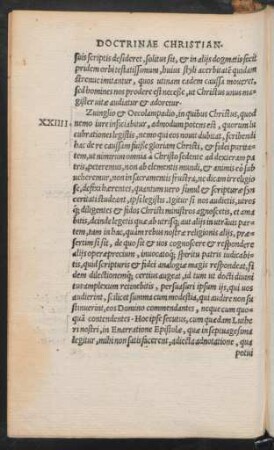 DOCTRINAE CHRISTIAN-
suis scriptis desideret, solitus sit, & in alijs dogmatis fecit
pridem orbi testatissimum, huius styli acerbitatẽ quodam
strenue imitantur, quos utinam eadem caussa moueret.
sed homines nos prodere est necesse, ut Christus unus ma-
gister uitæ audiatur & adoretur.
XXIIII Zuinglio & Oecolampadio, in quibus Christus, quod
nemo iure inficiabitur, admodum potens est, quorum lu
cubrationes legistis, nemo qui eos nouit dubitat, scribendi
hac de re caussam fuisse gloriam Christi, & fidei purita-
tem, ut nimirum omnia à Christo sedente ad dexteram pa
tris, peteremus, non ab elementis mundi, & animo eò ja
ueherentur, non in sacramentis frustra, nec ex more religio
se, desixi hærerent, quantum uero suum & scripturæ syn
ceritati studeant, ipsi legistis. Igitur si nos audietis, utros
q́; diligentes & fidos Christi ministros agnoscetis, et ama
bitis, neutros quidem, ab de aut in uerba ut patrum pa-
tem, tam in hac, quam rebus nostræ religionis alijs, præ-
sertim si sic, de quo sic & uos cognoscere et respondere
alijs operæprecium, inuocatoq́; spiritu patris iudicabi-
tis, quid scripturis & fidei analogiæ magis respondeat, fi
dem dilectionemq́; certius augeat, id tum ut docti diuini
tus amplexum retinebitis, persuasuri ipsum ijs, qui uos
audierint, scilicet summa cum modestia, qui audire non su
stinuerint, eos Domino commendantes, neque cum quo-
quã contendentes. Hoc ipse secutus, cum quædam Luthe
ri nostri, in Enarratione Epistolæ, quæ in septuagesima
legitur, mihi non satisfecerent, adiecta adnotatione, quæ
potui